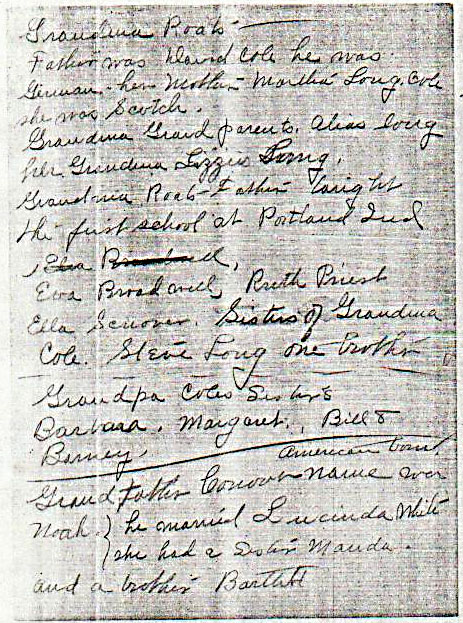 Grandma Roab
Father was David Cole he was
German, her Mother Martha Long Cole
she was Scotch.
Grandma Grand parents. Alias Long
her Grandma Lizzie Long.
Grandma Roab Father taught
the first school at Portland Ind
Eva Broadwell, Ruth Priest
Ella Scriover. Sisters of Grandma
Cole. Steve Long one brother
Grandpa Coles Sisters
Barbara. Margaret., Bill &
Barney.
American born,
Grand Father Conover name was
Noah. } he married Lucinda White
she had a Sister Manda.
and a brother Bartlett